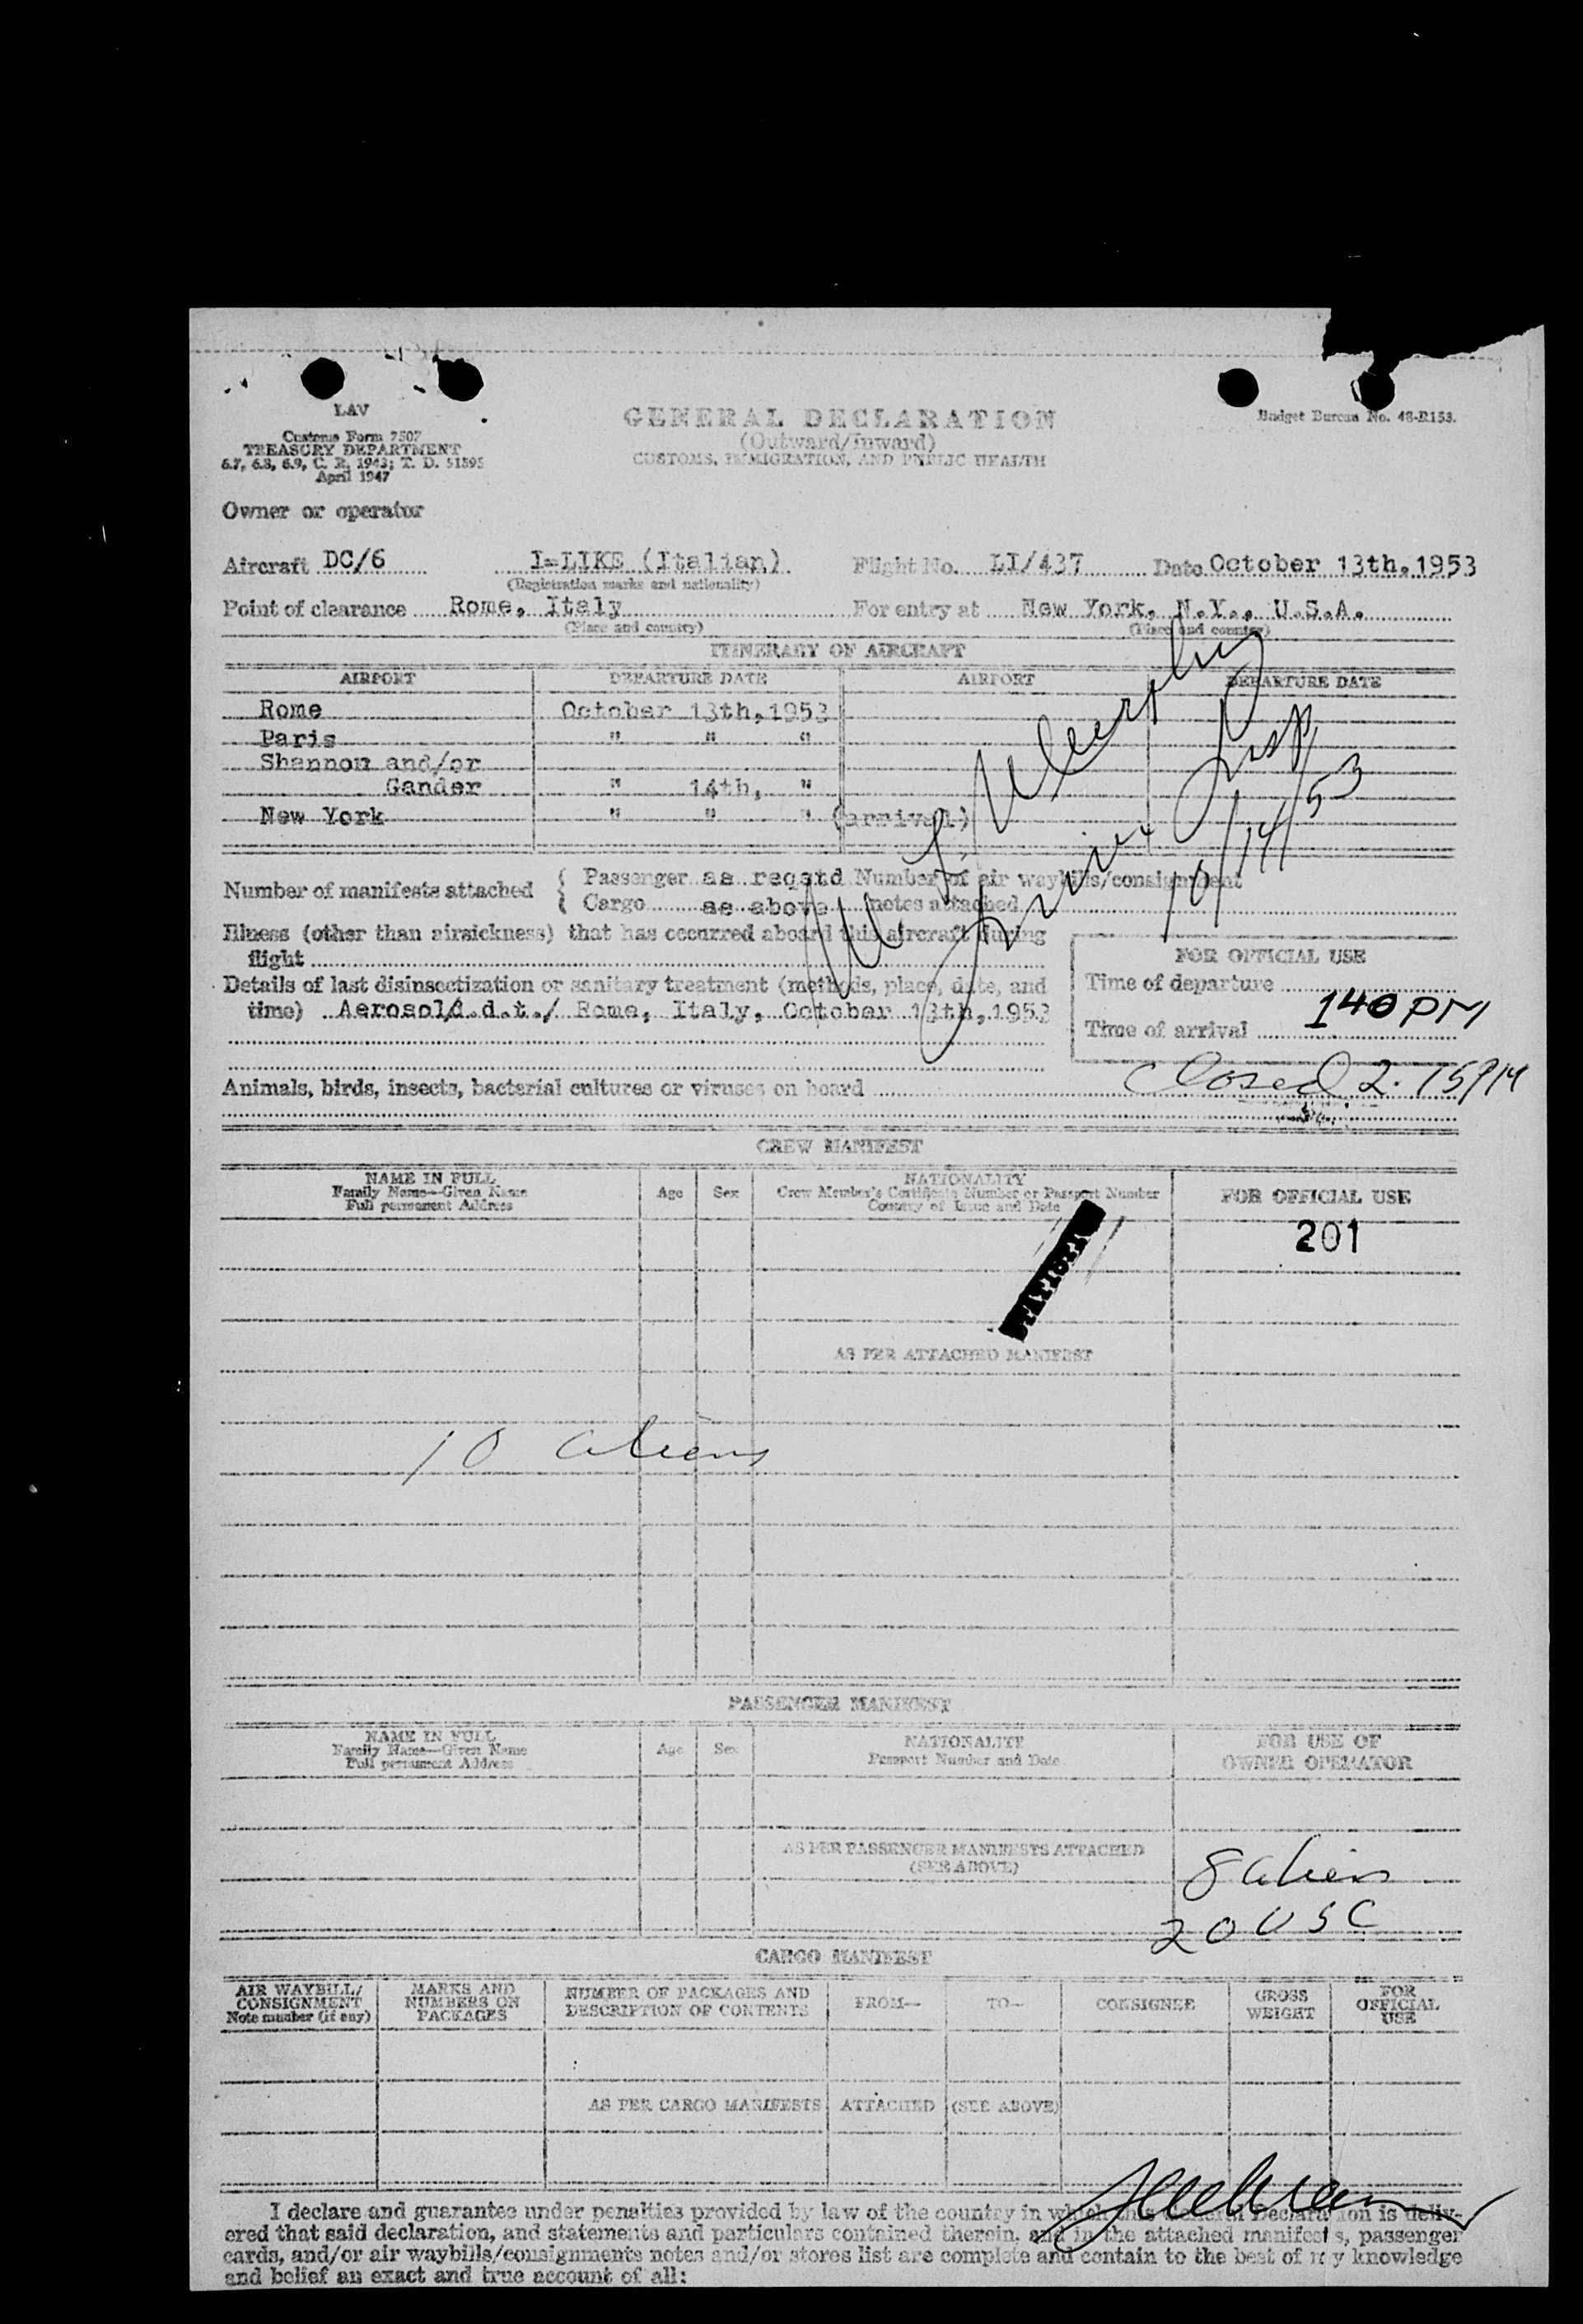 LAV
Customs Form 7507
TREASURY DEPARTMENT
6.7, 6.8, 6.9, C. R. 1943; T. D. 51895
April 1947
GENERAL DECLARATION
(Outward/Inward)
CUSTOMS, IMMIGRATION, AND PUBLIC HEALTH
Budget Bureau No. 48-R153.
Owner or operator
Aircraft DC/6 I-LIKE (Italian) Flight No. LI/437 Date October 13th, 1953
(Registration marks and nationality)
Point of clearance Rome, Italy For entry at New York, N.Y., U.S.A.
(Place and country) (Place and country)
ITINERARY OF AIRCRAFT
AIRPORT DEPARTURE DATE AIRPORT DEPARTURE DATE
Rome October 13th, 1953
Paris " " "
Shannon and/or
Gander " 14th, "
New York " " " (arrival)
10/14/53
Number of manifests attached { Passenger as reqstd Number of air waybills/consignment
{ Cargo as above notes attached
Illness (other than airsickness) that has occurred aboard this aircraft during
flight
Details of last disinsectization or sanitary treatment (methods, place, date, and
time) Aerosol/d.d.t./ Rome, Italy, October 13th, 1953
FOR OFFICIAL USE
Time of departure
Time of arrival 140 PM
Closed 2.15PM
Animals, birds, insects, bacterial cultures or viruses on board
CREW MANIFEST
NAME IN FULL
Family Name—Given Name
Full permanent Address
Age Sex
NATIONALITY
Crew Member's Certificate Number or Passport Number
Country of Issue and Date
FOR OFFICIAL USE
201
AS PER ATTACHED MANIFEST
10 aliens
PASSENGER MANIFEST
NAME IN FULL
Family Name—Given Name
Full permanent Address
Age Sex
NATIONALITY
Passport Number and Date
FOR USE OF
OWNER OPERATOR
AS PER PASSENGER MANIFESTS ATTACHED
(SEE ABOVE)
8 aliens
20 USC
CARGO MANIFEST
AIR WAYBILL/
CONSIGNMENT
Note number (if any)
MARKS AND
NUMBERS ON
PACKAGES
NUMBER OF PACKAGES AND
DESCRIPTION OF CONTENTS
FROM— TO— CONSIGNEE
GROSS
WEIGHT
FOR
OFFICIAL
USE
AS PER CARGO MANIFESTS ATTACHED (SEE ABOVE)
I declare and guarantee under penalties provided by law of the country in which this General Declaration is deliv-
ered that said declaration, and statements and particulars contained therein, and in the attached manifests, passenger
cards, and/or air waybills/consignments notes and/or stores list are complete and contain to the best of my knowledge
and belief an exact and true account of all: